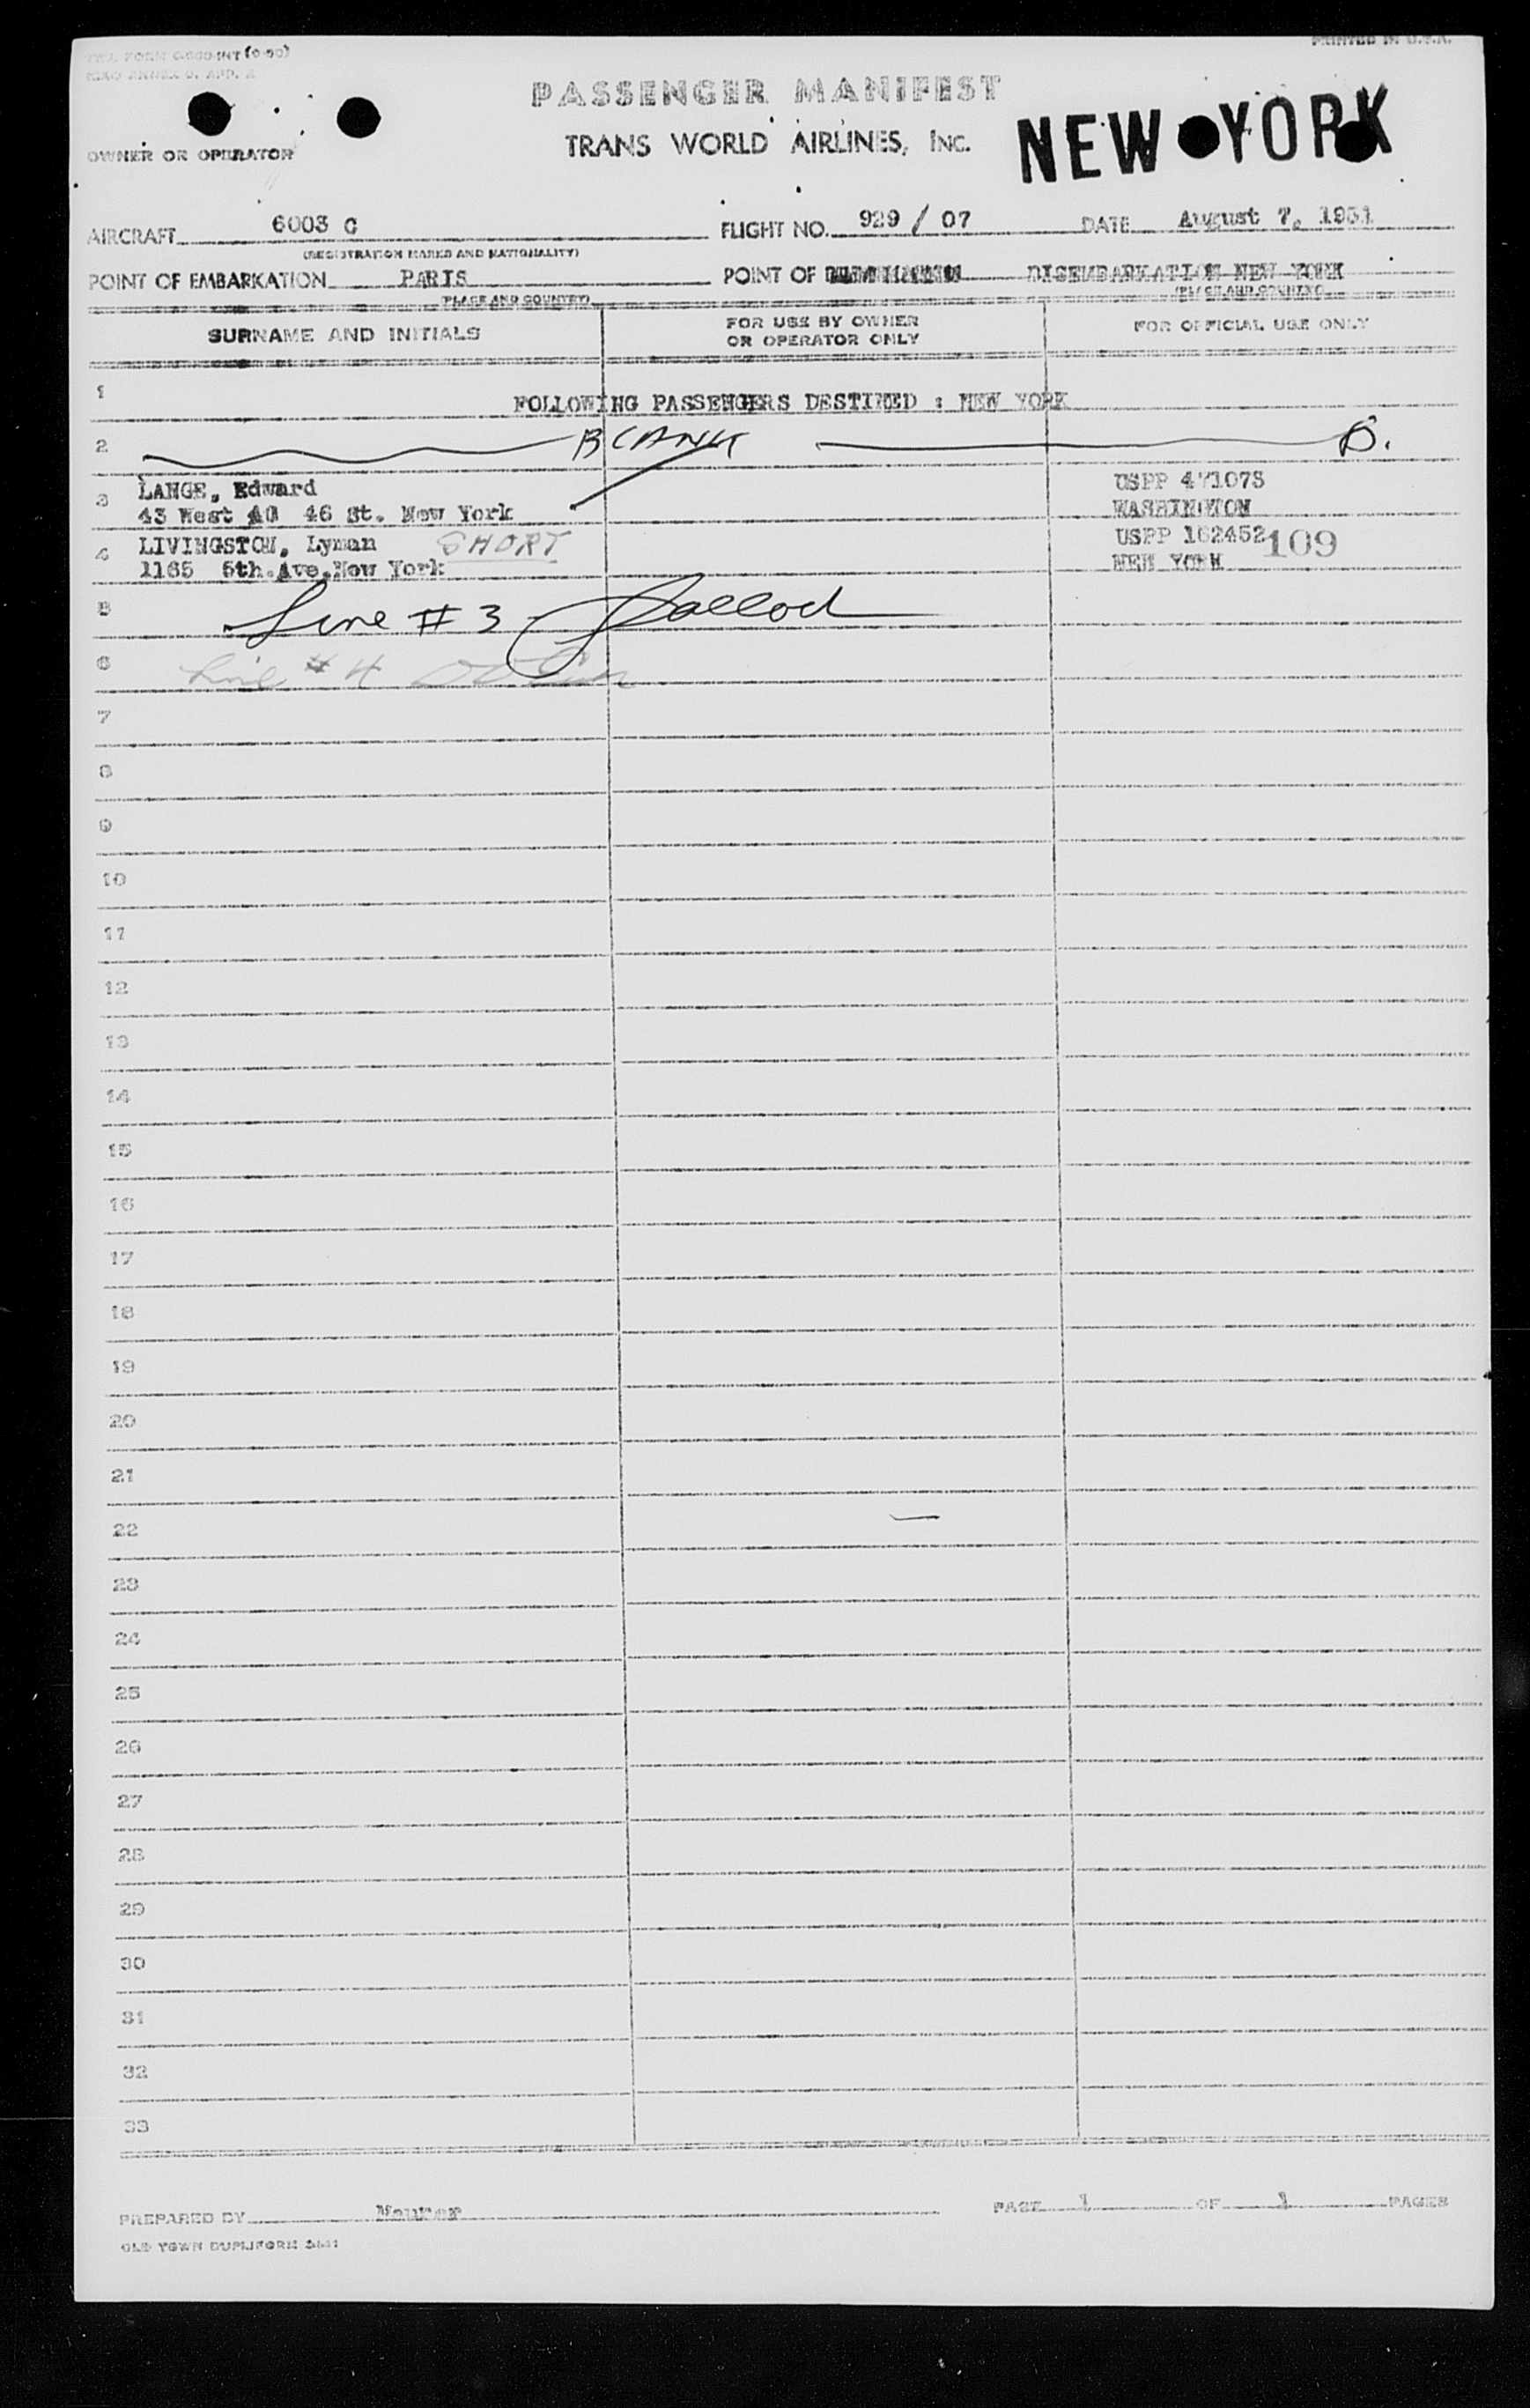 PRINTED IN U.S.A.
PASSENGER MANIFEST
TRANS WORLD AIRLINES, INC.
NEW YORK
OWNER OR OPERATOR
AIRCRAFT 6003 C FLIGHT NO. 929 / 07 DATE August 7, 1951
(REGISTRATION MARKS AND NATIONALITY)
POINT OF EMBARKATION PARIS POINT OF DISEMBARKATION NEW YORK
(PLACE AND COUNTRY) (PLACE AND COUNTRY)
SURNAME AND INITIALS FOR USE BY OWNER OR OPERATOR ONLY FOR OFFICIAL USE ONLY
1 FOLLOWING PASSENGERS DESTINED : NEW YORK
2 BLANK
3 LANGE, Edward USPP 471078
43 West 46 St. New York WASHINGTON
4 LIVINGSTON, Lyman SHORT USPP 162452 109
1165 5th.Ave.New York NEW YORK
5 Line # 3
6 Line # 4
7
8
9
10
11
12
13
14
15
16
17
18
19
20
21
22
23
24
25
26
27
28
29
30
31
32
33
PREPARED BY Maurer PAGE 1 OF 1 PAGES
OLD TOWN DUPLIFORM